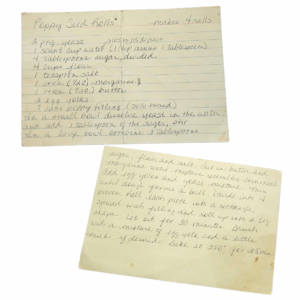 Poppy Seed Rolls makes 4 rolls
2 pkg yeast
1 scant cup water (1 cup minus 1 tablespoon)
4 tablespoons sugar, divided
4 cups flour
1 teaspoon salt
1 stick (1/2 c) margarine
1 stick (1/2 c) butter
3 egg yolks
1 cake poppy filling
In a small bowl dissolve yeast in the water
and add 1 tablespoon of the sugar, stir
In a large bowl combine 3 tablespoons
sugar, flour and salt. Cut in butter and
margarine until mixture resembles
Add egg yolks and yeast mixture. Mix
until dough forms a ball. Divide into 4
pieces. Roll each piece into a rectangle,
spread with filling and roll up into a log
shape. Let sit for 30 minutes. Brush
with a mixture of egg yolk and a little
if desired. Bake at 350° for 45 min